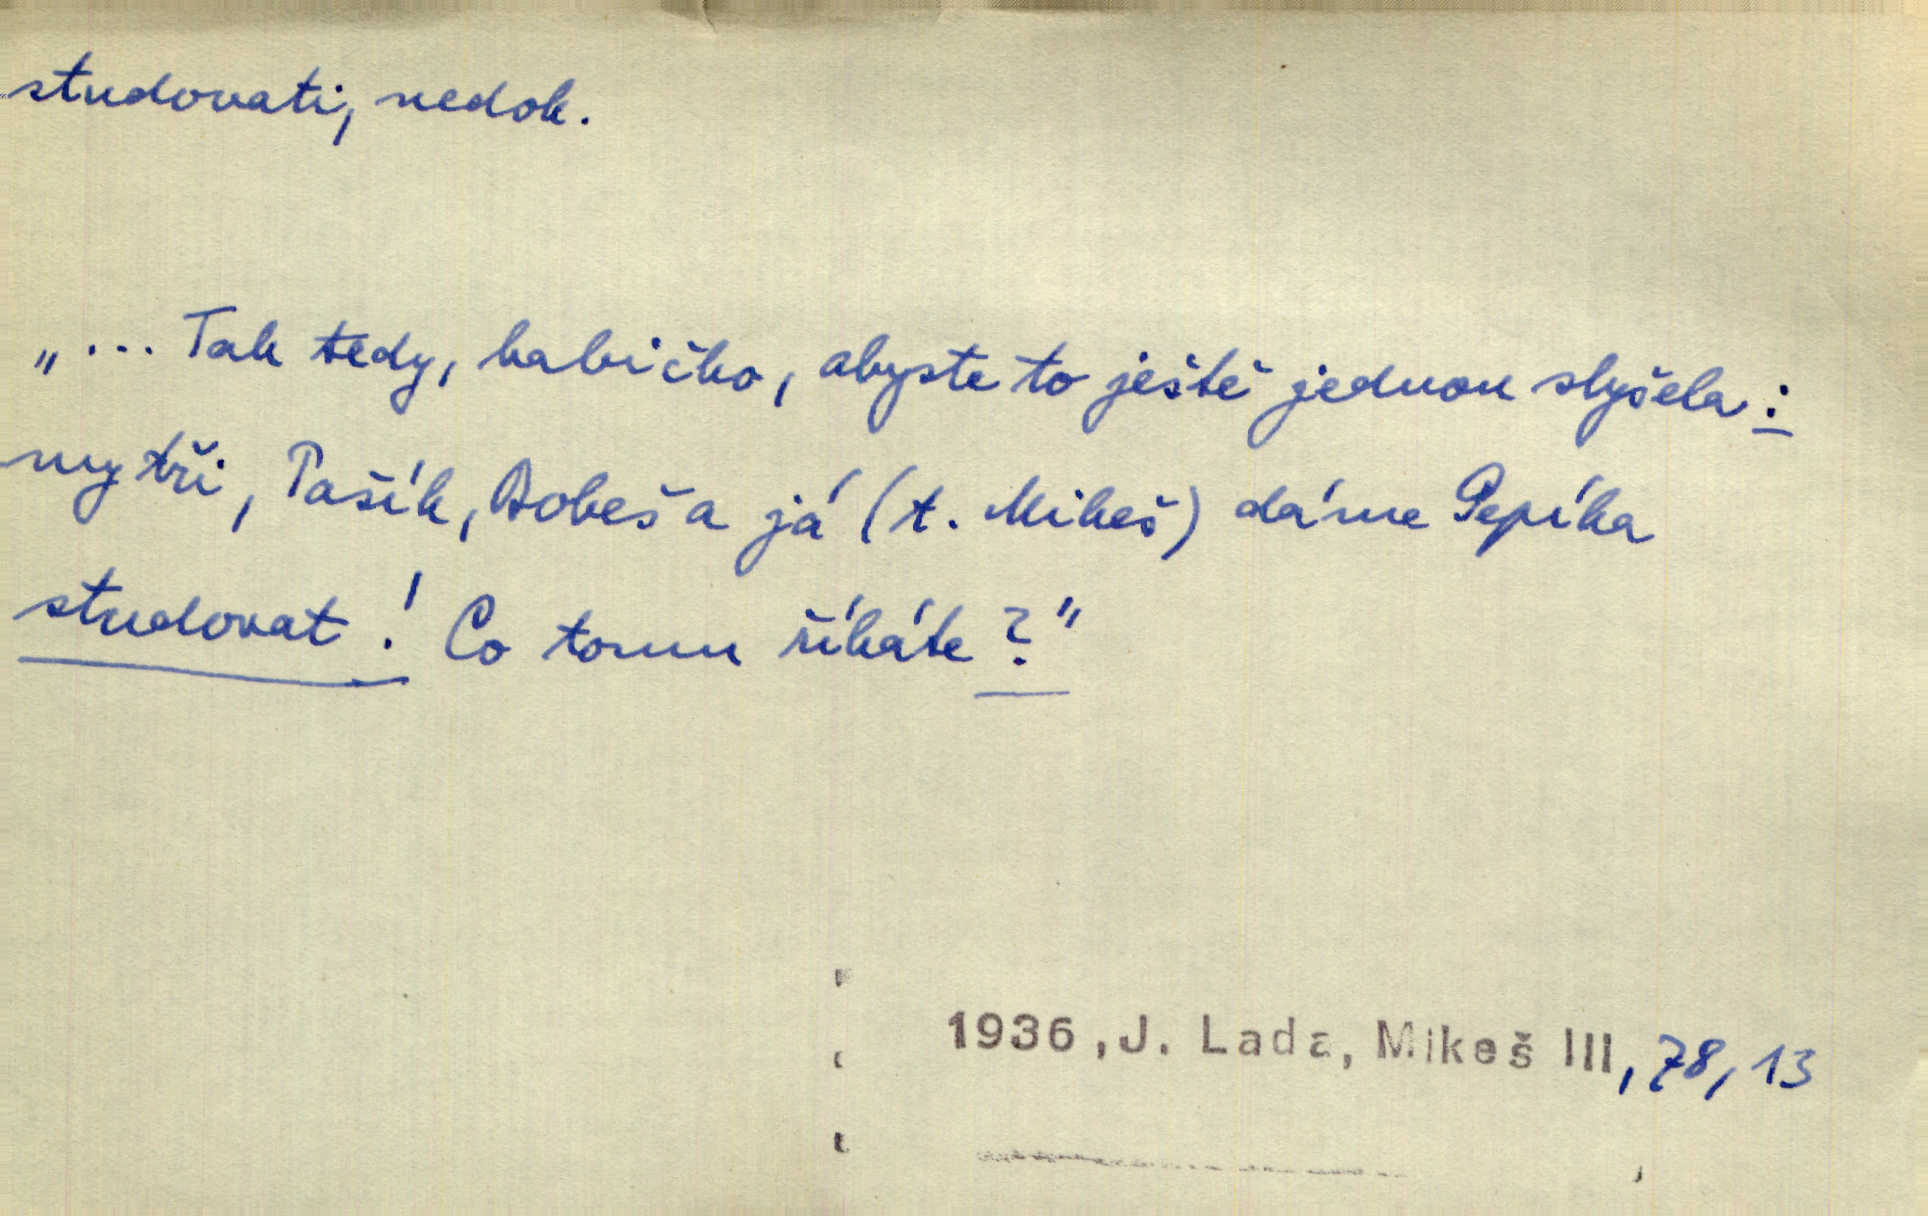 studovati, nedok.
„... Tak tedy, babičko, abyste to ještě jednou slyšela:
my tři, Pašík, Bobeš a já (t. Mikeš) dáme Pepíka
studovat! Co tomu říkáte?"
1936, J. Lada, Mikeš III, 78, 13